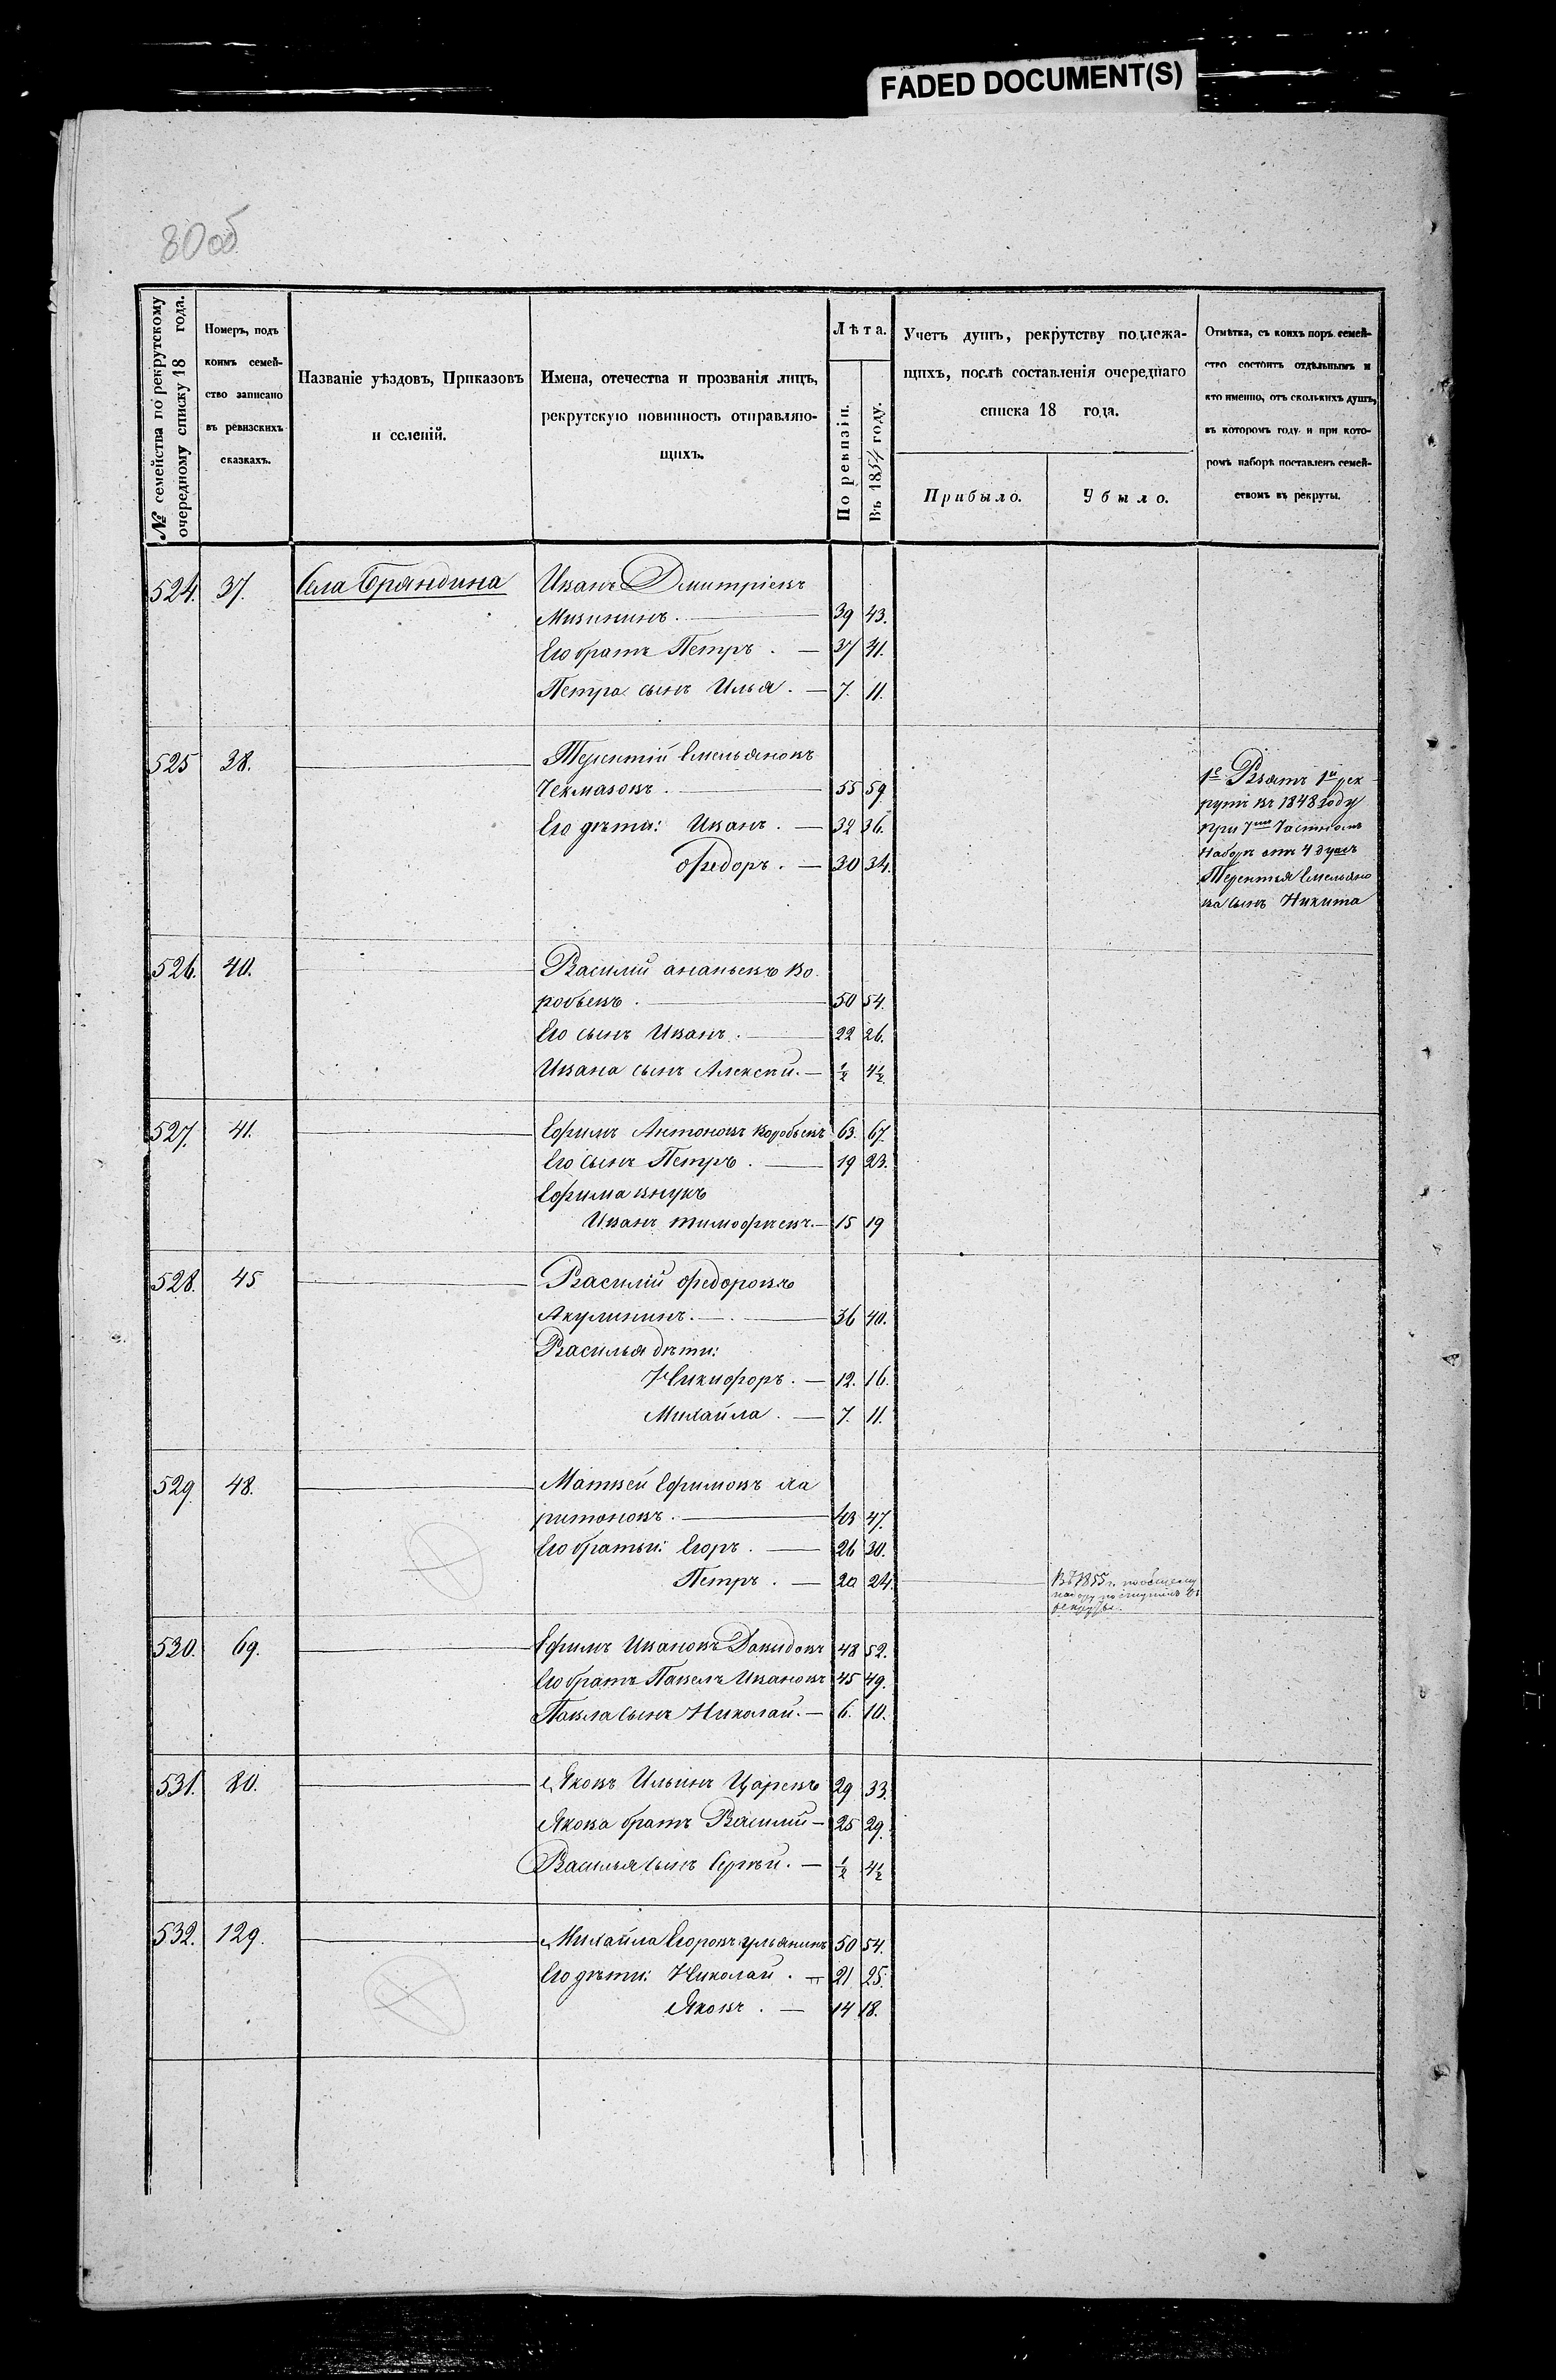 FADED DOCUMENT(S)
80 об
№ семейства по рекрутскому
очередному списку 18 года.
Номеръ, подъ
коимъ семей-
ство записано
въ ревизскихъ
сказкахъ.
Названіе уѣздовъ, Приказовъ
и селеній.
Имена, отечества и прозванія лицъ,
рекрутскую повинность отправляю-
щихъ.
Лѣта.
По ревизіи.
Въ 1854 году.
Учетъ душъ, рекрутству подлежа-
щихъ, послѣ составленія очереднаго
списка 18 года.
Прибыло.
Убыло.
Отмѣтка, съ коихъ поръ семей-
ство состоитъ отдѣльнымъ и
кто именно, отъ сколькихъ душъ,
въ которомъ году и при кото-
ромъ наборѣ поставленъ семей-
ствомъ въ рекруты.
524. 37. Села Бряндина Иванъ Дмитріевъ
Мизининъ. 39 43.
Его братъ Петръ. 37 41.
Петра сынъ Илья. 7. 11.
525 38. Терентій Емельяновъ
Чекмазовъ. 55 59
Его дѣти: Иванъ. 32 36.
Федоръ. 30 34.
1е Взятъ 1й рек
рутъ въ 1848 году
при 7мъ Частномъ
Наборѣ отъ 4 душъ
Терентья Емельяно
ва сынъ Никита
526. 40. Василій ананьевъ Во
робьевъ. 50 54.
Его сынъ Иванъ. 22 26.
Ивана сынъ Алексѣй. ½ 4½
527. 41. Ефимъ Антоновъ Воробьевъ 63. 67.
Его сынъ Петръ. 19 23.
Ефима внукъ
Иванъ тимофѣевъ. 15 19
528. 45 Василій федоровъ
Акулининъ. 36 40.
Василья дѣти:
Никифоръ. 12. 16.
Михайла. 7. 11.
529 48. Матвей Ефимовъ Ха
ритоновъ. 43 47.
Его братьи: Егоръ. 26 30.
Петръ. 20 24
Въ 1855 г. по общему
набору поступилъ въ
рекруты.
530. 69. Ефимъ Ивановъ Давидовъ 48 52.
Его братъ Павелъ Ивановъ 45 49.
Павла сынъ Николай. 6. 10.
531. 80. Яковъ Ильинъ Царевъ 29 33.
Якова братъ Василій 25 29.
Василья сынъ Сергѣй. ½ 4½
532. 129. Михайла Егоровъ ульянинъ 50 54.
Его дѣти: Николай. 21 25.
Яковъ. 14 18.